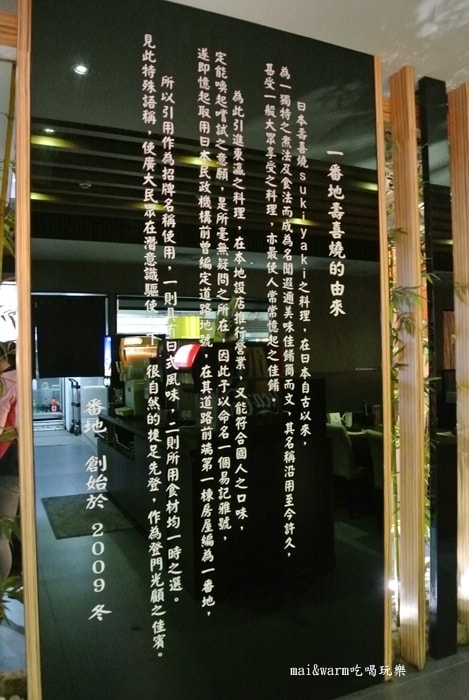 一番地壽喜燒的由來
日本壽喜燒sukiyaki之料理，在日本自古以來，
為一獨特之煮法及食法而成為名聞遐邇美味佳餚爾而文，其名稱沿用至今許久，
甚受一般大眾享受之料理，亦最使人常常憶起之佳餚。
為此引進東瀛之料理，在本地設店推行營業，又能符合國人之口味，
定能喚起嚐試之意願，是所毫無疑問之所在，因此予以命名一個易記雅號，
遂即憶起取用日本民政機構前曾編定道路地號，在其道路前端第一棟房屋編為一番地，
所以引用作為招牌名稱使用，一則具有日式風味，二則所用食材均一時之選。
見此特殊語稱，使廣大民眾在潛意識驅使之下，很自然的捷足先登，作為登門光顧之佳賓。
一番地 創始於 2009 冬
mai&warm吃喝玩樂